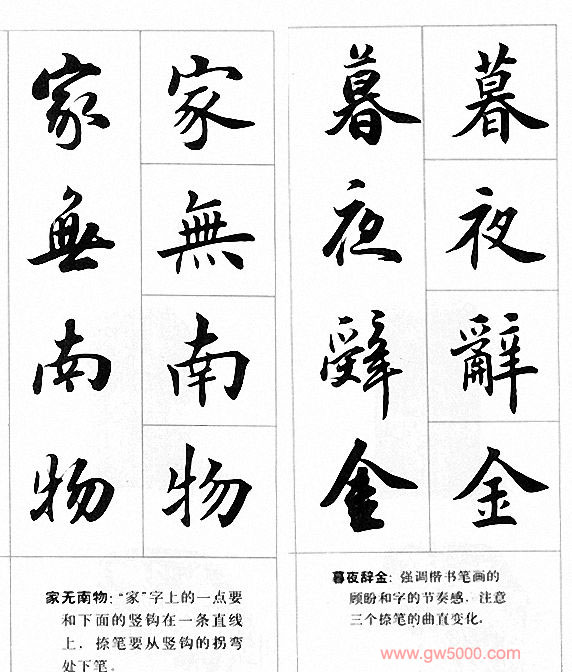 暮夜辭金
暮夜辭金
暮夜辞金：强调楷书笔画的
顾盼和字的节奏感，注意
三个捺笔的曲直变化。
家無南物
家無南物
家无南物：“家”字上的一点要
和下面的竖钩在一条直线
上，捺笔要从竖钩的拐弯
处下笔。
www.gw5000.com